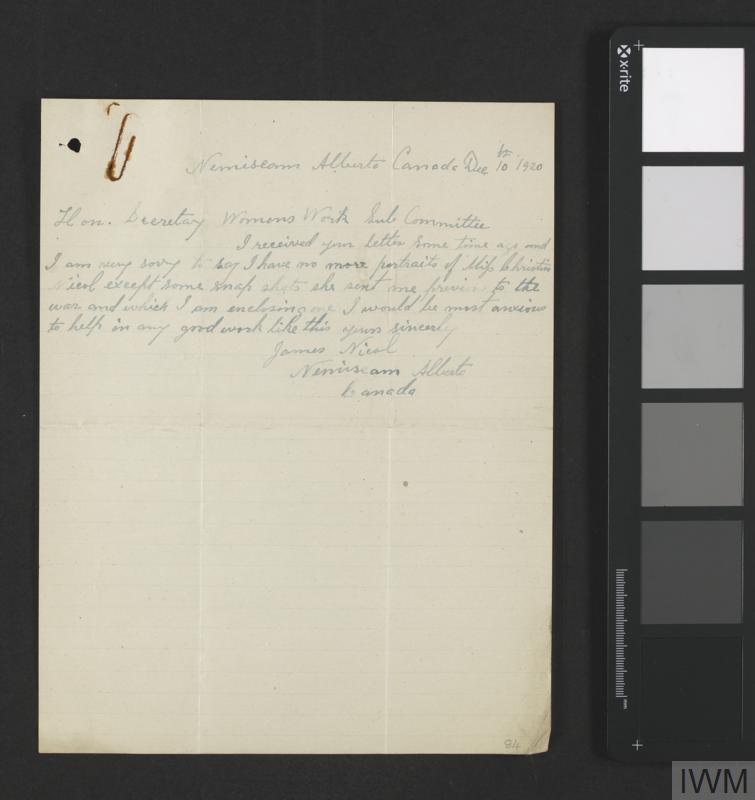 Nemiscam Alberta Canada Dec 10th 1920
Hon. Secretary Womens Work Sub Committee
I received your letter some time ago and
I am very sorry to say I have no more portraits of Miss Christin
Nicol except some snap shots she sent me previous to the
war and which I am enclosing one I would be most anxious
to help in any good work like this yours sincerly
James Nicol
Nemiscam Alberta
Canada
84
x-rite
mm
IWM